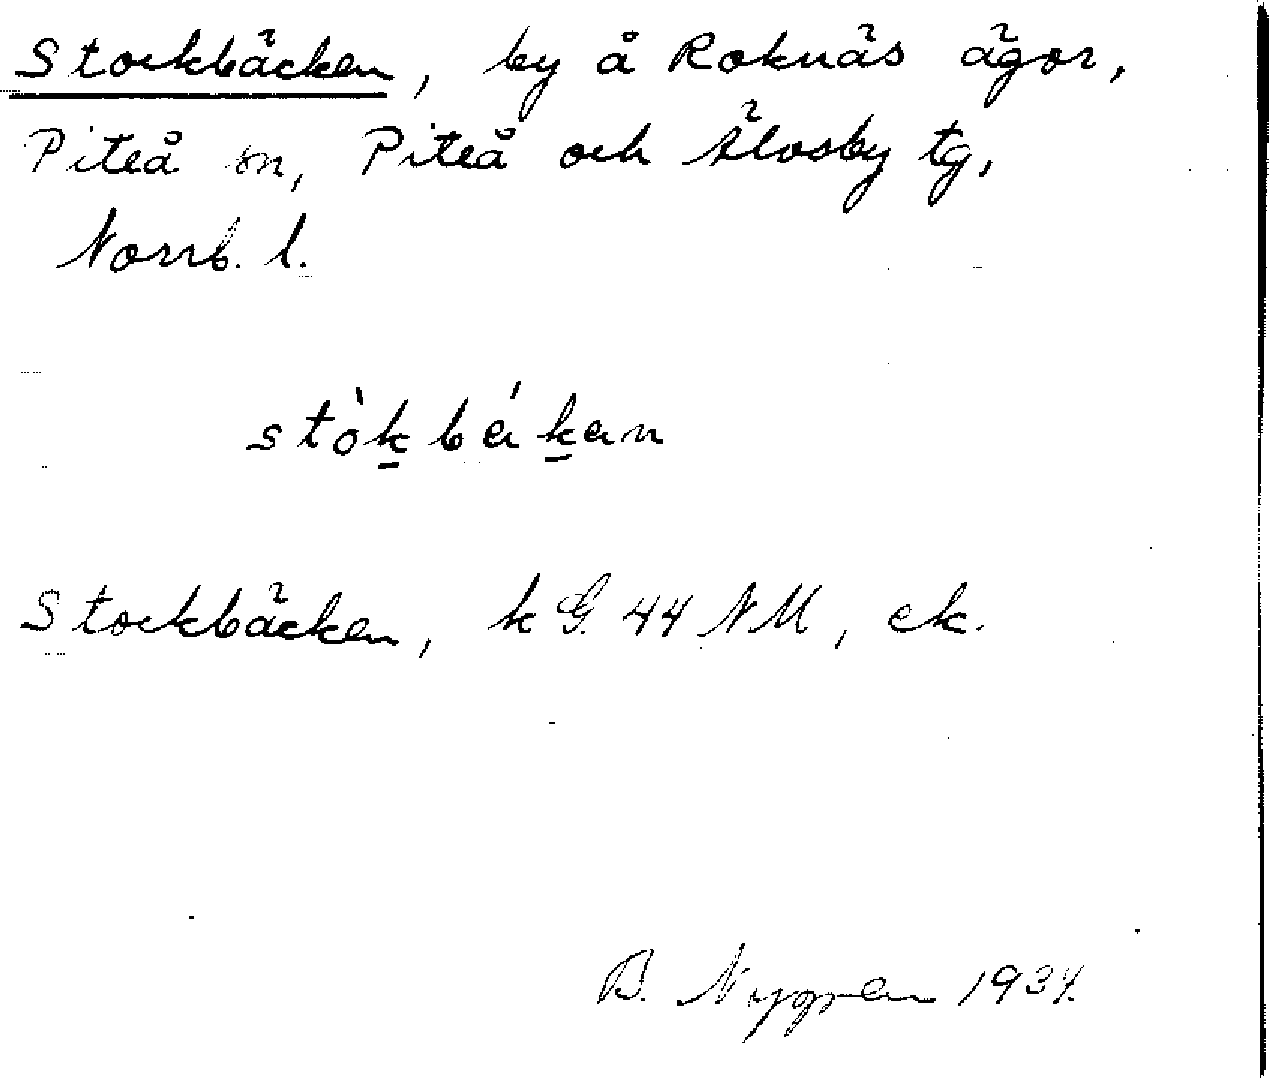 Stockbäcken, by å Roknäs ägor,
Piteå sn, Piteå och Älvsby tg,
Norrb. l.
stòkbákan
Stockbäcken, k G. 44 NM, ek.
B. Nygren 1934.